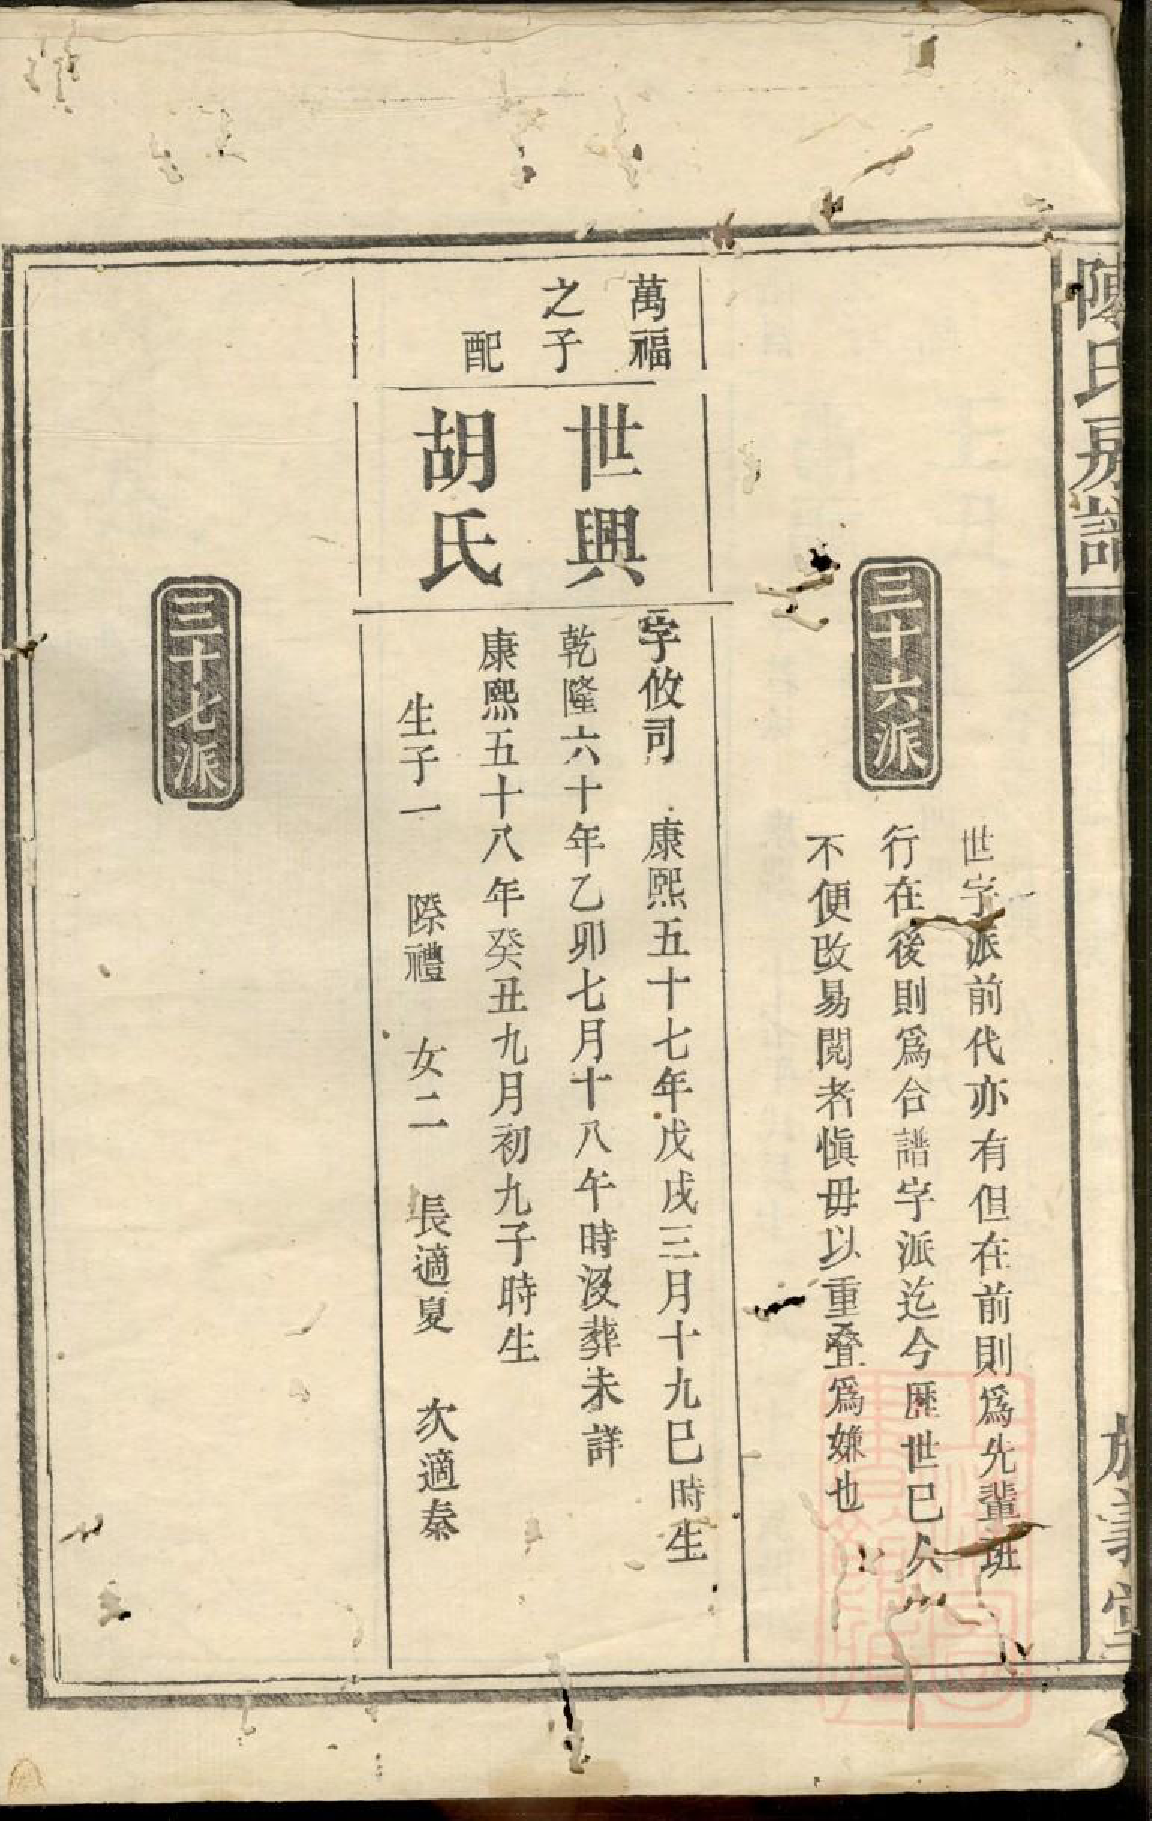 陳氏房譜
三十六派
世字派前代亦有但在前則爲先輩班
行在後則爲合譜字派迄今歷世已久
不便改易閱者愼毋以重疊爲嫌也
萬福
之子
世興
字攸司 康熙五十七年戊戌三月十九巳時生
乾隆六十年乙卯七月十八午時沒葬未詳
配
胡氏
康熙五十八年癸丑九月初九子時生
生子一 際禮 女二 長適夏 次適秦
三十七派